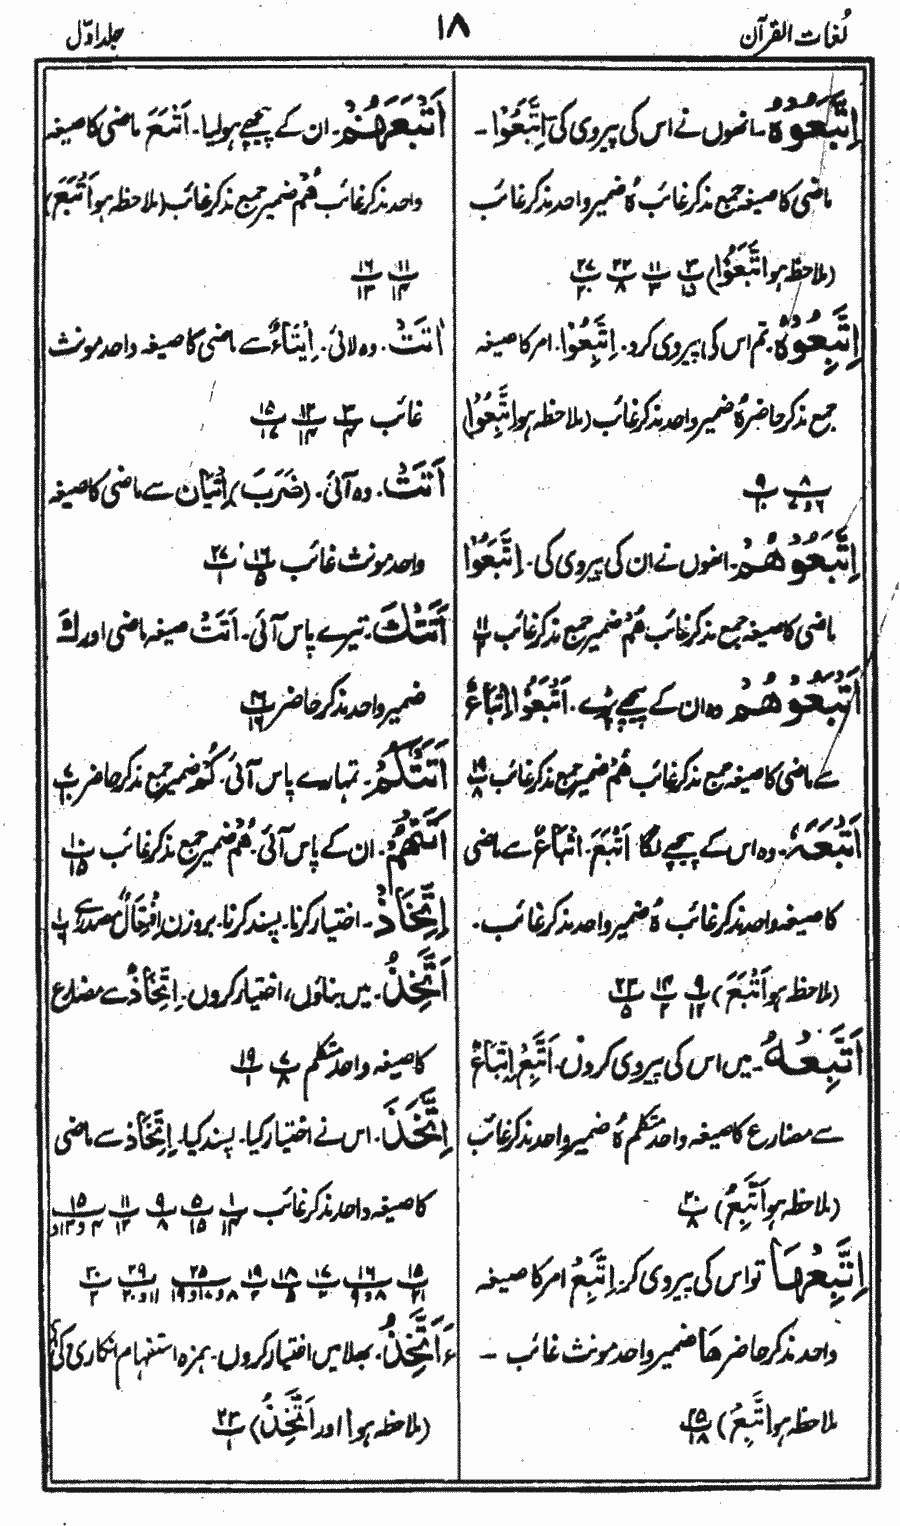 لُغات القرآن
۱۸
جلد اوّل
اِتَّبَعُوْهُ۔ انھوں نے اس کی پیروی کی اِتَّبَعُوْا۔
ماضی کا صیغہ جمع مذکر غائب ہُ ضمیر واحد مذکر غائب
(ملاحظہ ہو اِتَّبَعُوْا) ۳ ۱۵ ۱۱ ۳ ۲۲ ۸ ۲۷ ۲۰
اِتَّبِعُوْهُ۔ تم اس کی پیروی کرو۔ اِتَّبِعُوْا۔ امر کا صیغہ
جمع مذکر حاضر ہُ ضمیر واحد مذکر غائب (ملاحظہ ہو اِتَّبِعُوْا)
۸ ۶و۷ ۹ ۲۰
اِتَّبَعُوْهُمْ۔ انھوں نے ان کی پیروی کی۔ اِتَّبَعُوْا
ماضی کا صیغہ جمع مذکر غائب هُمْ ضمیر جمع مذکر غائب ۱۱ ۲
اَتْبَعُوْهُمْ وہ ان کے پیچھے پڑے۔ اَتْبَعُوْا اِتْبَاعٌ
سے ماضی کا صیغہ جمع مذکر غائب هُمْ ضمیر جمع مذکر غائب ۱۹ ۸
اَتْبَعَهٗ۔ وہ اس کے پیچھے لگا اَتْبَعَ۔ اتْبَاعٌ سے ماضی
کا صیغہ واحد مذکر غائب ہُ ضمیر واحد مذکر غائب۔
(ملاحظہ ہو اَتْبَعَ) ۹ ۱۲ ۱۴ ۲ ۲۳ ۵
اَتَّبِعُهُ۔ میں اس کی پیروی کروں۔ اَتَّبِعُ اِتِّبَاعٌ
سے مضارع کا صیغہ واحد متکلم ہُ ضمیر واحد مذکر غائب
(ملاحظہ ہو اَتَّبِعُ) ۲۰ ۸
اِتَّبِعْهَا تو اس کی پیروی کر۔ اِتَّبِعْ امر کا صیغہ
واحد مذکر حاضر هَا ضمیر واحد مونث غائب ۔
ملاحظہ ہو اَتَّبِعُ) ۲۵ ۱۸
اَتْبَعَهُمْ۔ ان کے پیچھے ہولیا۔ اَتْبَعَ ماضی کا صیغہ
واحد مذکر غائب هُمْ ضمیر جمع مذکر غائب (ملاحظہ ہو اَتْبَعَ)
۱۱ ۱۴ ۱۶ ۱۳
اٰتَتْ۔ وہ لائی۔ اِیْتَاءٌ سے ماضی کا صیغہ واحد مونث
غائب ۳ ۴ ۱۳ ۱۴ ۱۵ ۱۷
اَتَتْ۔ وہ آئی۔ (ضَرَبَ) اِتْیَان سے ماضی کا صیغہ
واحد مونث غائب ۱۶ ۵ ۲۷ ۱
اَتَتْكَ۔ تیرے پاس آئی۔ اَتَتْ صیغہ ماضی اور كَ
ضمیر واحد مذکر حاضر ۲۶ ۱۶
اَتَتْكُمْ۔ تمہارے پاس آئی۔ كُمْ ضمیر جمع مذکر حاضر
اَتَتْهُمْ۔ ان کے پاس آئی۔ هُمْ ضمیر جمع مذکر غائب ۱۰ ۱۵
اِتِّخَاذْ۔ اختیار کرنا۔ پسند کرنا۔ بروزن اِفْتِعَالْ مصدر ہے ۱ ۶
اَتَّخِذُ۔ میں بناؤں، اختیار کروں۔ اِتِّخَاذٌ سے مضارع
کا صیغہ واحد متکلم ۷ ۸ ۱۹ ۱
اِتَّخَذَ۔ اس نے اختیار کیا۔ پسند کیا۔ اِتِّخَاذ سے ماضی
کا صیغہ واحد مذکر غائب ۱ ۱۴ ۵ ۱۵ ۹ ۸ ۱۱ ۱۲ ۱۵ ۴و۱۳و
۱۵ ۲۱ ۱۶ ۸و۹ ۱۷ ۲ ۱۸ ۵ ۱۹ ۲ ۲۵ ۸و۱۰و۱۹ ۲۹ ۱۱و۲۰ ۳۰ ۲
ءَاَتَّخِذُ۔ بھلا میں اختیار کروں۔ ہمزہ استفہام انکاری کی
(ملاحظہ ہو أ اور اَتَّخِذُ) ۲۳ ۱